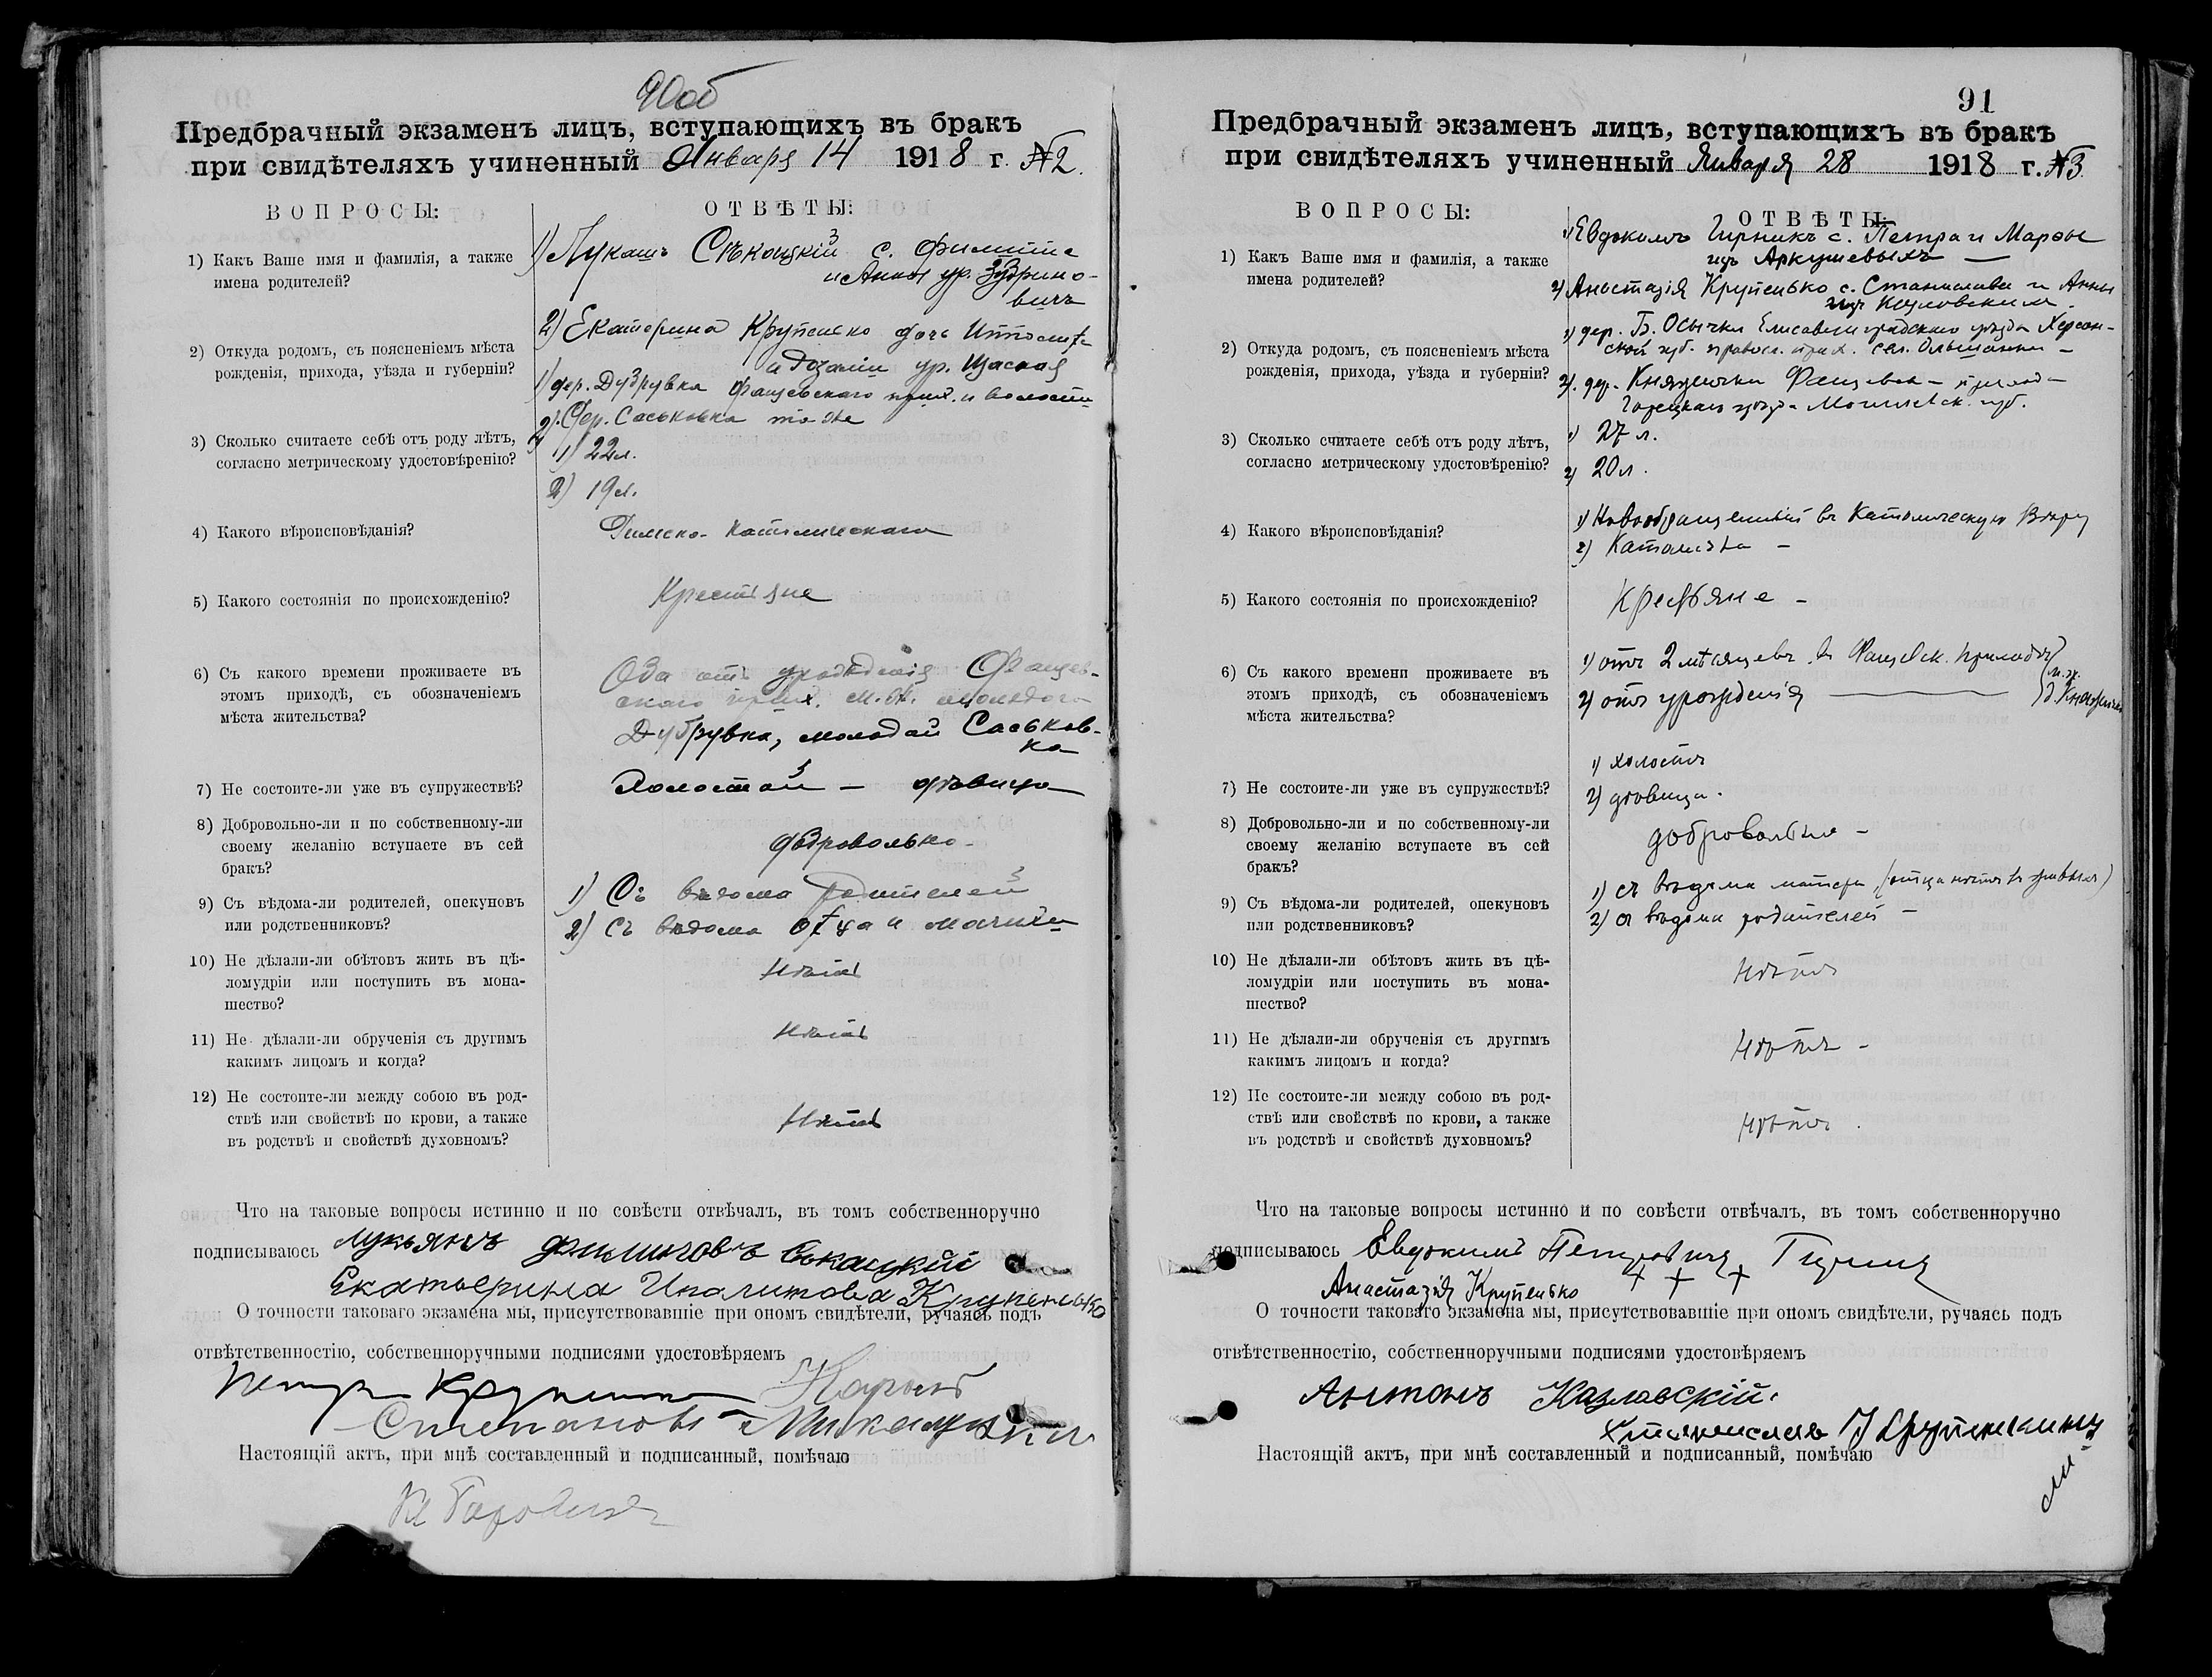 90об
Предбрачный экзаменъ лицъ, вступающихъ въ бракъ
при свидѣтеляхъ учиненный Января 14 1918 г. №2.
ВОПРОСЫ:
ОТВѢТЫ:
1) Какъ Ваше имя и фамилія, а также
имена родителей?
1) Лукашъ Сѣкоцкій с. Филиппа
и Анны ур.
вичъ
2) Екатерина Крупенько дочь Ипполита
ур.
2) Откуда родомъ, съ поясненіемъ мѣста
рожденія, прихода, уѣзда и губерніи?
1) дер. Дубрувка Фащевскаго прих. и волости
2) Дер. Саськовка то же
3) Сколько считаете себѣ отъ роду лѣтъ,
согласно метрическому удостовѣренію?
1) 22 л.
2) 19 л.
4) Какого вѣроисповѣданія?
Римско-Католическаго
5) Какого состоянія по происхожденію?
Крестьяне
6) Съ какого времени проживаете въ
этомъ приходѣ, съ обозначеніемъ
мѣста жительства?
Оба отъ урожденія Фащев-
скаго прих. м. ж. молодого
Дубрувка, молодой Саськов-
ка
7) Не состоите-ли уже въ супружествѣ?
Холостой — дѣвица
8) Добровольно-ли и по собственному-ли
своему желанію вступаете въ сей
бракъ?
добровольно
9) Съ вѣдома-ли родителей, опекуновъ
или родственниковъ?
1) Съ вѣдома родителей
2) Съ вѣдома отца и мачихи
10) Не дѣлали-ли обѣтовъ жить въ цѣ-
ломудріи или поступить въ мона-
шество?
Нѣтъ
11) Не дѣлали-ли обрученія съ другимъ
какимъ лицомъ и когда?
Нѣтъ
12) Не состоите-ли между собою въ род-
ствѣ или свойствѣ по крови, а также
въ родствѣ и свойствѣ духовномъ?
Нѣтъ
Что на таковые вопросы истинно и по совѣсти отвѣчалъ, въ томъ собственноручно
подписываюсь Лукьянъ Филиповъ Сѣкацкій
Екатьерина Иполитова Крупенько
О точности таковаго экзамена мы, присутствовавшіе при ономъ свидѣтели, ручаясь подъ
отвѣтственностію, собственноручными подписями удостовѣряемъ
Петръ
Степановъ
Настоящій актъ, при мнѣ составленный и подписанный, помѣчаю
91
Предбрачный экзаменъ лицъ, вступающихъ въ бракъ
при свидѣтеляхъ учиненный Января 28 1918 г. №3
ВОПРОСЫ:
ОТВѢТЫ:
1) Какъ Ваше имя и фамилія, а также
имена родителей?
1) Евдокимъ Гирникъ с. Петра и Марѳы
изъ Аркушевыхъ —
2) Анастазія Крупенько с. Станислава и Анны
изъ Козловскихъ
2) Откуда родомъ, съ поясненіемъ мѣста
рожденія, прихода, уѣзда и губерніи?
1) дер. Б. Осычки Елисаветградскаго уѣзда Херсон-
ской губ. правосл. прих. сел. Ольшанки —
2) дер. Княжички Фащевск — прихода
Горецкаго уѣзда Могилевск. губ.
3) Сколько считаете себѣ отъ роду лѣтъ,
согласно метрическому удостовѣренію?
1) 27 л.
2) 20 л.
4) Какого вѣроисповѣданія?
1) Новообращенный въ Католическую Вѣру
2) Католичка —
5) Какого состоянія по происхожденію?
Крестьяне —
6) Съ какого времени проживаете въ
этомъ приходѣ, съ обозначеніемъ
мѣста жительства?
1) отъ 2 мѣсяцевъ въ Фащевск. приходѣ
м. ж.
2) отъ урожденія — д. Княжички
7) Не состоите-ли уже въ супружествѣ?
1) холостъ
2) дѣвица.
8) Добровольно-ли и по собственному-ли
своему желанію вступаете въ сей
бракъ?
добровольно —
9) Съ вѣдома-ли родителей, опекуновъ
или родственниковъ?
1) съ вѣдома матери, (отца нѣтъ въ живыхъ)
2) съ вѣдома родителей —
10) Не дѣлали-ли обѣтовъ жить въ цѣ-
ломудріи или поступить въ мона-
шество?
Нѣтъ
11) Не дѣлали-ли обрученія съ другимъ
какимъ лицомъ и когда?
Нѣтъ —
12) Не состоите-ли между собою въ род-
ствѣ или свойствѣ по крови, а также
въ родствѣ и свойствѣ духовномъ?
Нѣтъ.
Что на таковые вопросы истинно и по совѣсти отвѣчалъ, въ томъ собственноручно
подписываюсь Евдокимъ Петровичъ
Анастазія Крупенько + + +
О точности таковаго экзамена мы, присутствовавшіе при ономъ свидѣтели, ручаясь подъ
отвѣтственностію, собственноручными подписями удостовѣряемъ
Антонъ Казлавскій.
Настоящій актъ, при мнѣ составленный и подписанный, помѣчаю